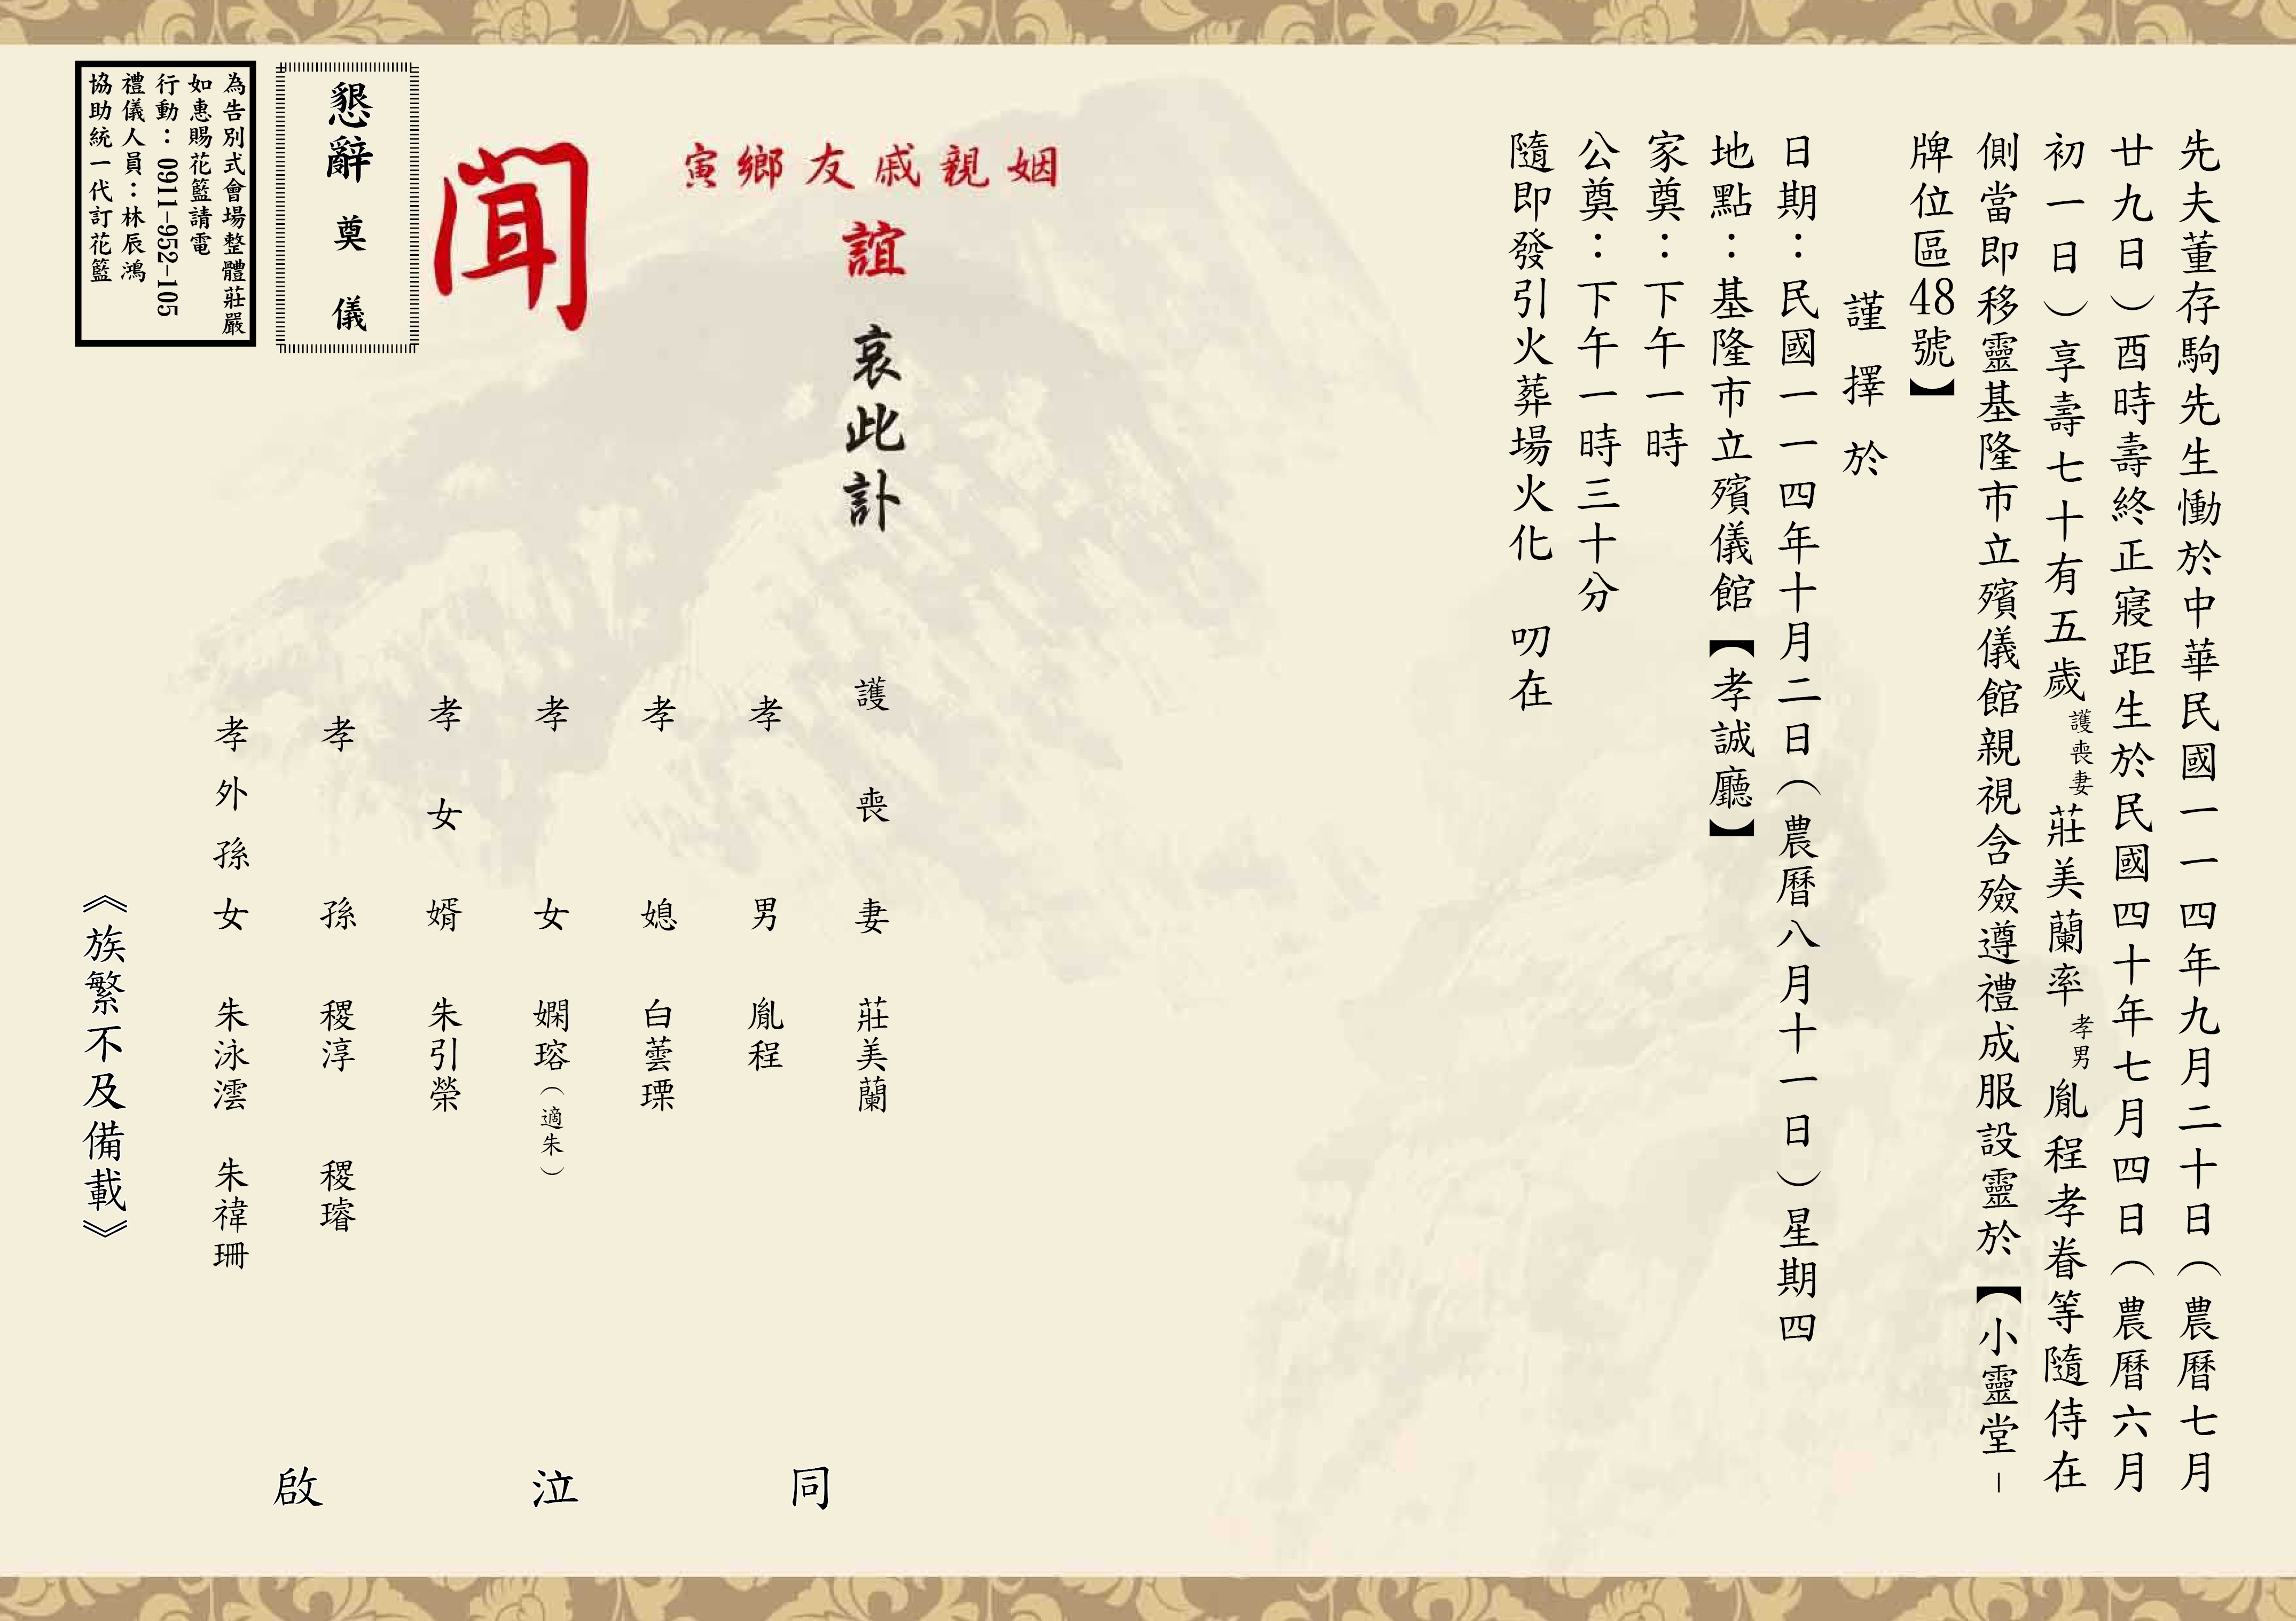 先夫董存駒先生慟於中華民國一一四年九月二十日（農曆七月
廿九日）酉時壽終正寢距生於民國四十年七月四日（農曆六月
初一日）享壽七十有五歲護喪妻莊美蘭率孝男胤程孝眷等隨侍在
側當即移靈基隆市立殯儀館親視含殮遵禮成服設靈於【小靈堂－
牌位區48號】
謹擇於
日期：民國一一四年十月二日（農曆八月十一日）星期四
地點：基隆市立殯儀館【孝誠廳】
家奠：下午一時
公奠：下午一時三十分
隨即發引火葬場火化 叨在
姻親戚友鄉寅
誼哀此訃
聞
護喪妻 莊美蘭
孝男 胤程
孝媳 白蕓瑮
孝女 嫻瑢（適朱）
孝女婿 朱引榮
孝孫 稷淳 稷璿
孝外孫女 朱泳澐 朱禕珊
《族繁不及備載》
同泣啟
懇辭奠儀
為告別式會場整體莊嚴
如惠賜花籃請電
行動：0911-952-105
禮儀人員：林辰鴻
協助統一代訂花籃